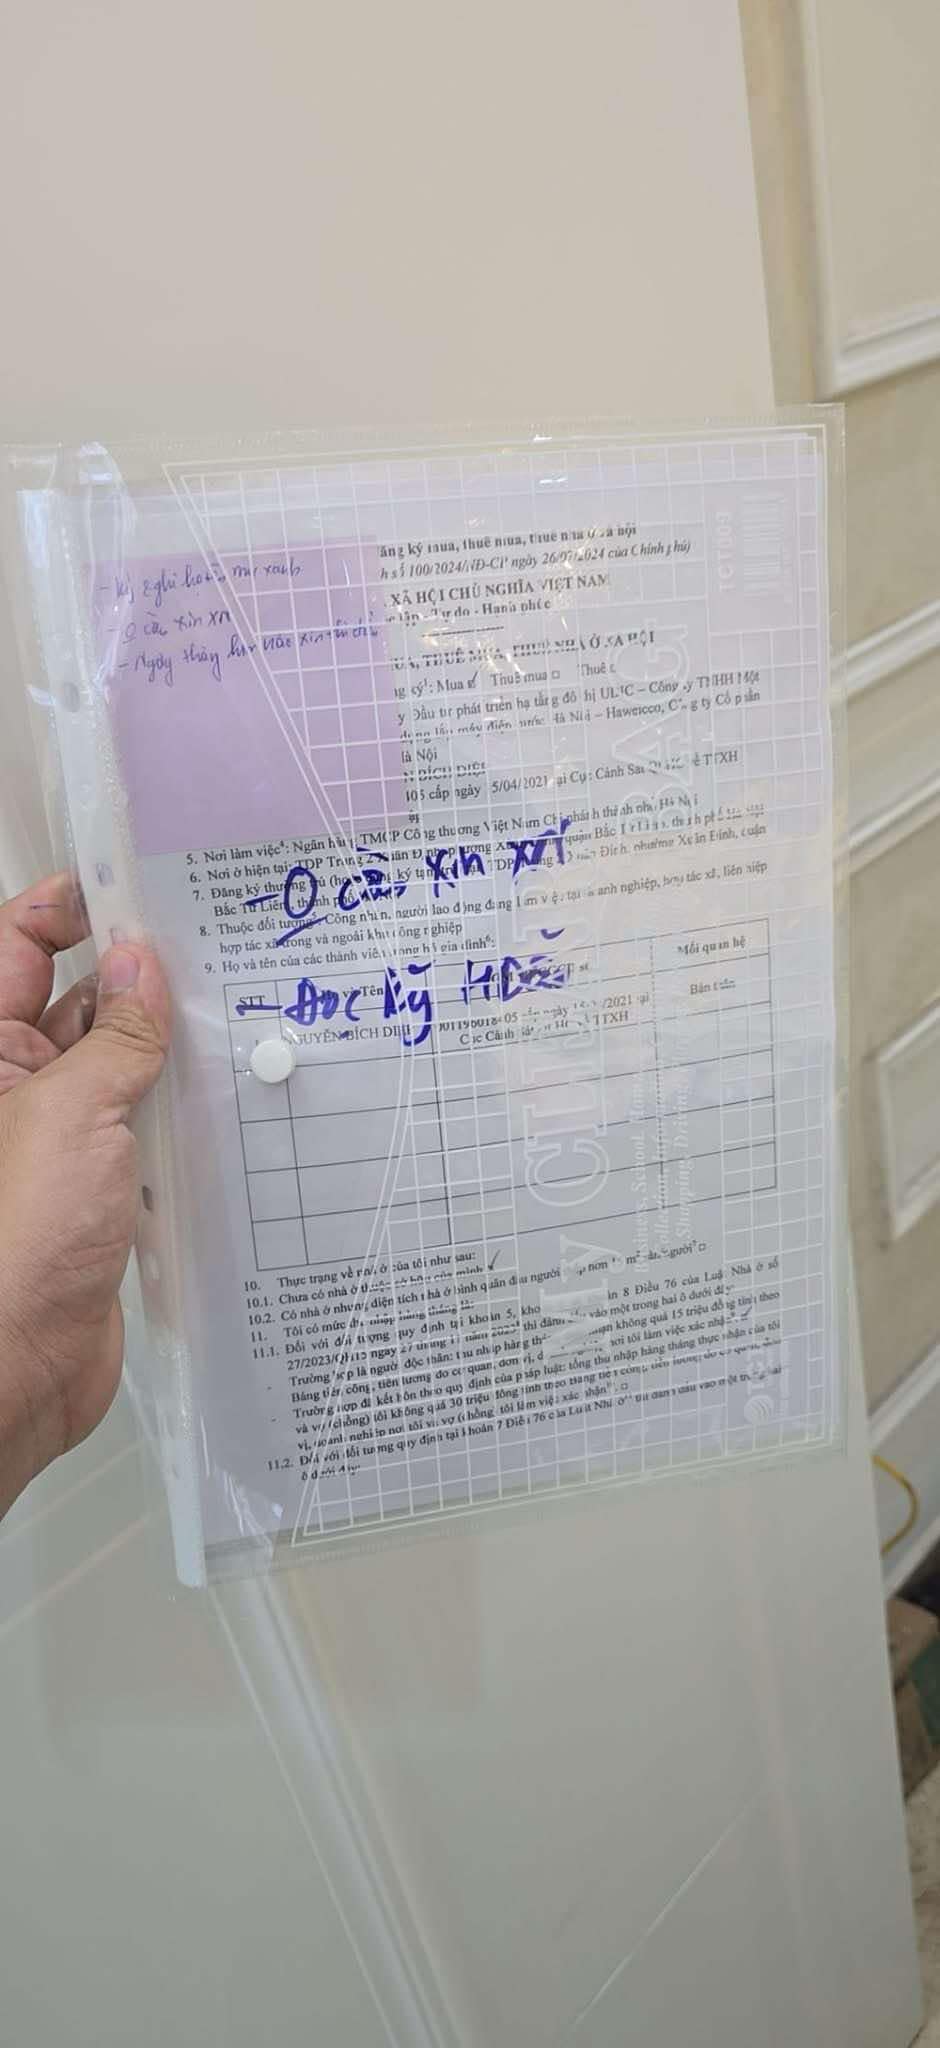 ăng ký mua, thuê mua, thuê nhà ở xã hội
h số 100/2024/NĐ-CP ngày 26/07/2024 của Chính phủ)
XÃ HỘI CHỦ NGHĨA VIỆT NAM
lập - Tự do - Hạnh phúc
UA, THUÊ MUA, THUÊ NHÀ Ở XÃ HỘI
ng ký¹: Mua ☑ Thuê mua □ Thuê □
- ký ghi mực xanh
- O cần xin xn
- Ngày tháng
y Đầu tư phát triển hạ tầng đô thị UDIC – Công ty TNHH Một
dựng lắp máy điện nước Hà Nội – Haweicco, Công ty Cổ phần
à Nội
N BÍCH DIỆP
405 cấp ngày 5/04/2021 tại Cục Cảnh Sát QLHC về TTXH
5. Nơi làm việc⁴: Ngân hàng TMCP Công thương Việt Nam Chi nhánh thành phố Hà Nội
6. Nơi ở hiện tại: TDP Trung 2 Xuân Đỉnh, phường Xuân quận Bắc Từ Liêm, thành phố Hà Nội
7. Đăng ký thường trú (hoặc đăng ký tạm trú) tại: TDP Xuân Đỉnh, phường Xuân Đỉnh, quận
Bắc Từ Liêm, thành phố
- O cần xin xn
8. Thuộc đối tượng⁵: Công nhân, người lao động đang làm việc tại doanh nghiệp, hợp tác xã, liên hiệp
hợp tác xã trong và ngoài khu công nghiệp
9. Họ và tên của các thành viên trong hộ gia đình⁶:
STT Họ và Tên CCCD số Mối quan hệ
- Đọc kỹ HD
1 NGUYỄN BÍCH DIỆP cấp ngày /2021 tại Bản thân
Cục Cảnh Sát TTXH
10. Thực trạng về nhà ở của tôi như sau:
10.1. Chưa có nhà ở thuộc sở hữu của mình ☑
10.2. Có nhà ở nhưng diện tích nhà ở bình quân đầu người thấp hơn 15 m² sàn/người⁷ □
11. Tôi có mức thu nhập hàng tháng là:
11.1. Đối với đối tượng quy định tại khoản 5, khoản 8 Điều 76 của Luật Nhà ở số
27/2023/QH15 ngày 27 tháng 11 năm 2023 thì đánh dấu vào một trong hai ô dưới đây:
- Trường hợp là người độc thân: thu nhập hàng tháng nhận không quá 15 triệu đồng tính theo
Bảng tiền công, tiền lương do cơ quan, đơn vị, doanh nghiệp nơi tôi làm việc xác nhận
- Trường hợp đã kết hôn theo quy định của pháp luật: tổng thu nhập hàng tháng thực nhận của tôi
và vợ (chồng) tôi không quá 30 triệu đồng tính theo Bảng tiền công, tiền lương do cơ quan, đơn
vị, doanh nghiệp nơi tôi và vợ (chồng) tôi làm việc xác nhận □
11.2. Đối với đối tượng quy định tại khoản 7 Điều 76 của Luật Nhà ở thì đánh dấu vào một trong hai
ô dưới đây:
My CLEAR BAG
Business, School, Home,
Collection, Information,
Shopping, Driving
TCT009